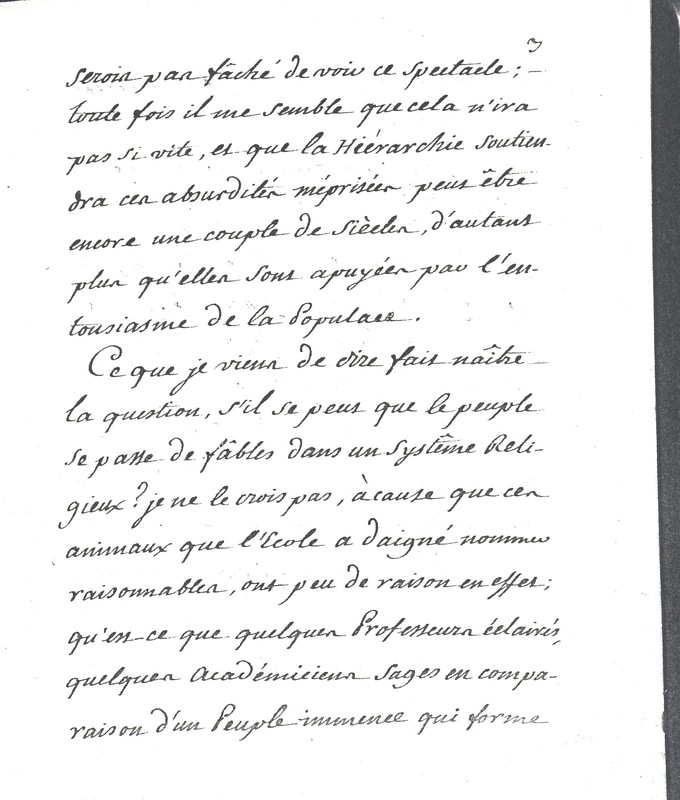 3
serois pas fâché de voir ce spectacle; –
toute fois il me semble que cela n'ira
pas si vite, et que la Hiérarchie soutien-
dra ces absurdités méprisées peut être
encore une couple de siècles, d'autant
plus qu'elles sont apuyées par l'en-
tousiasme de la Populace.
Ce que je viens de dire fait naître –
la question, s'il se peut que le peuple
se passe de fâbles dans un Systême Reli-
gieux? je ne le crois pas, à cause que ces
animaux que l'Ecole a daigné nommer
raisonnables, ont peu de raison en effet;
qu'est-ce que quelques Professeurs éclairés,
quelques Académiciens sages en compa-
raison d'un Peuple immence qui forme